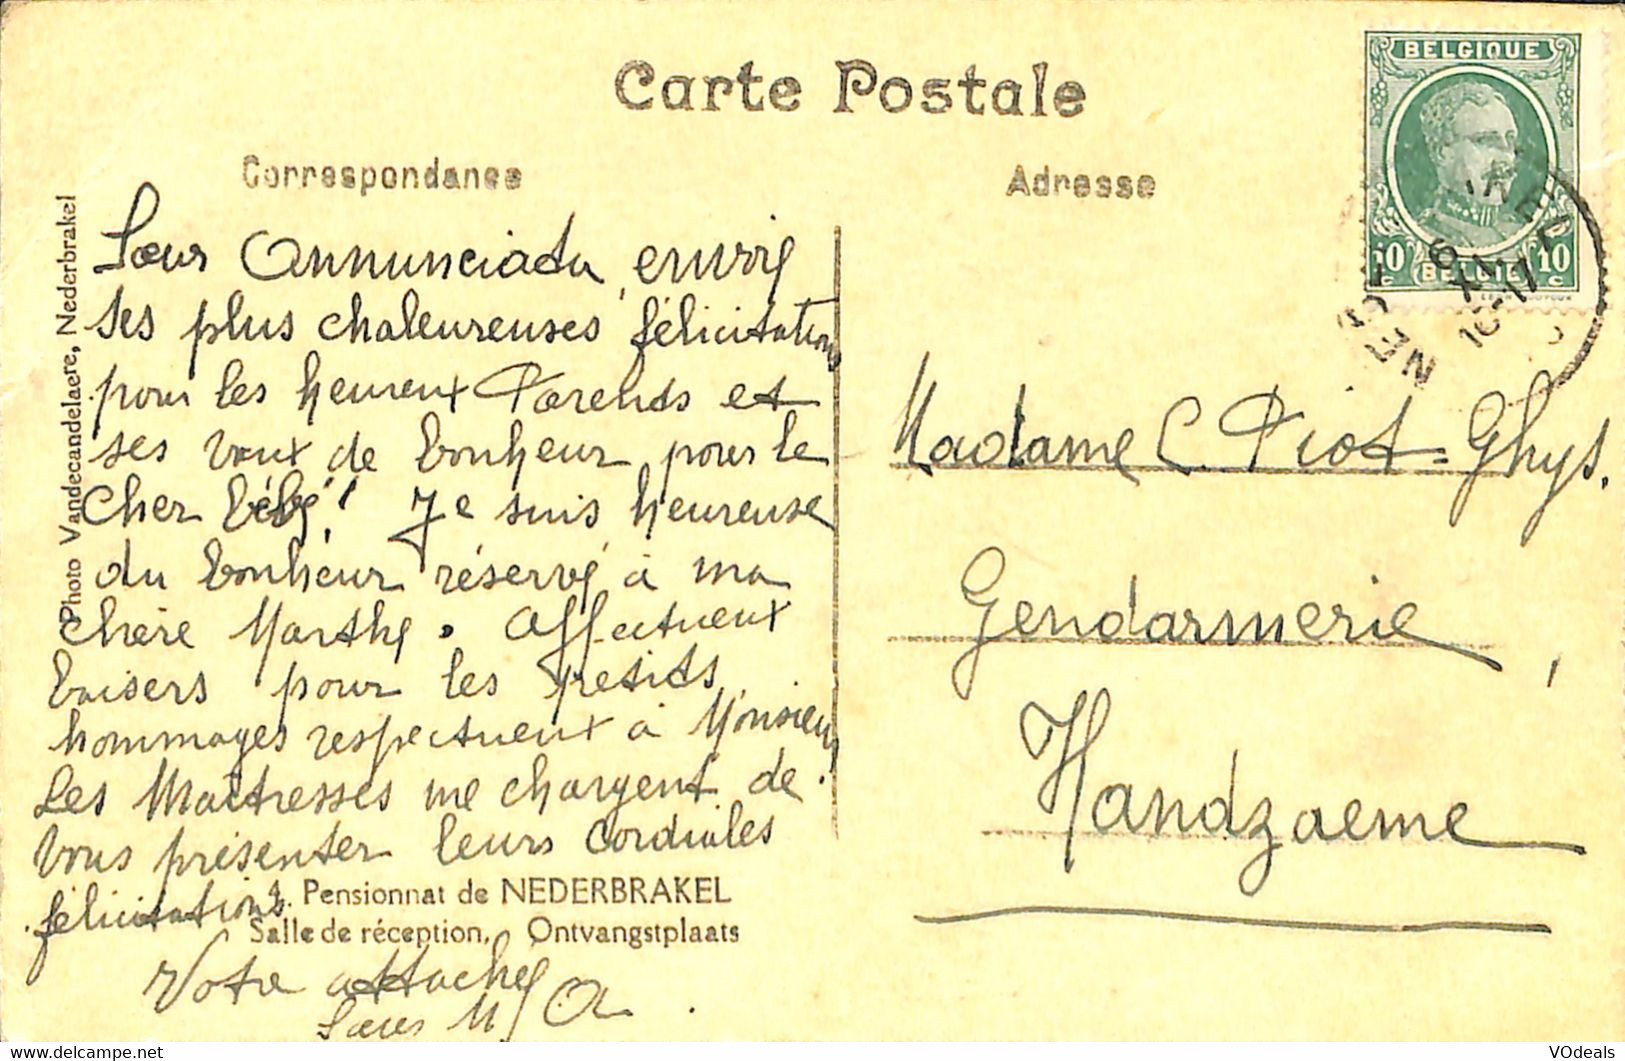 Carte Postale
Correspondance
Adresse
BELGIQUE
10 10
BELGIË
Photo Vandecandelaere, Nederbrakel
Sœur Annunciata envoie
ses plus chaleureuses félicitations
pour les heureux Parents et
ses vœux de bonheur pour le
cher bébé! Je suis heureuse
du bonheur réservé à ma
chère Marthe. Affectueux
baisers pour les petits,
hommages respectueux à Monsieur
Les Maîtresses me chargent de
vous présenter leurs cordiales
félicitations
4. Pensionnat de NEDERBRAKEL
Salle de réception, Ontvangstplaats
Votre attachée
Sœur M/A
Madame C Piot-Ghys.
Gendarmerie,
Handzaeme
6 XI
16-17
VOdeals